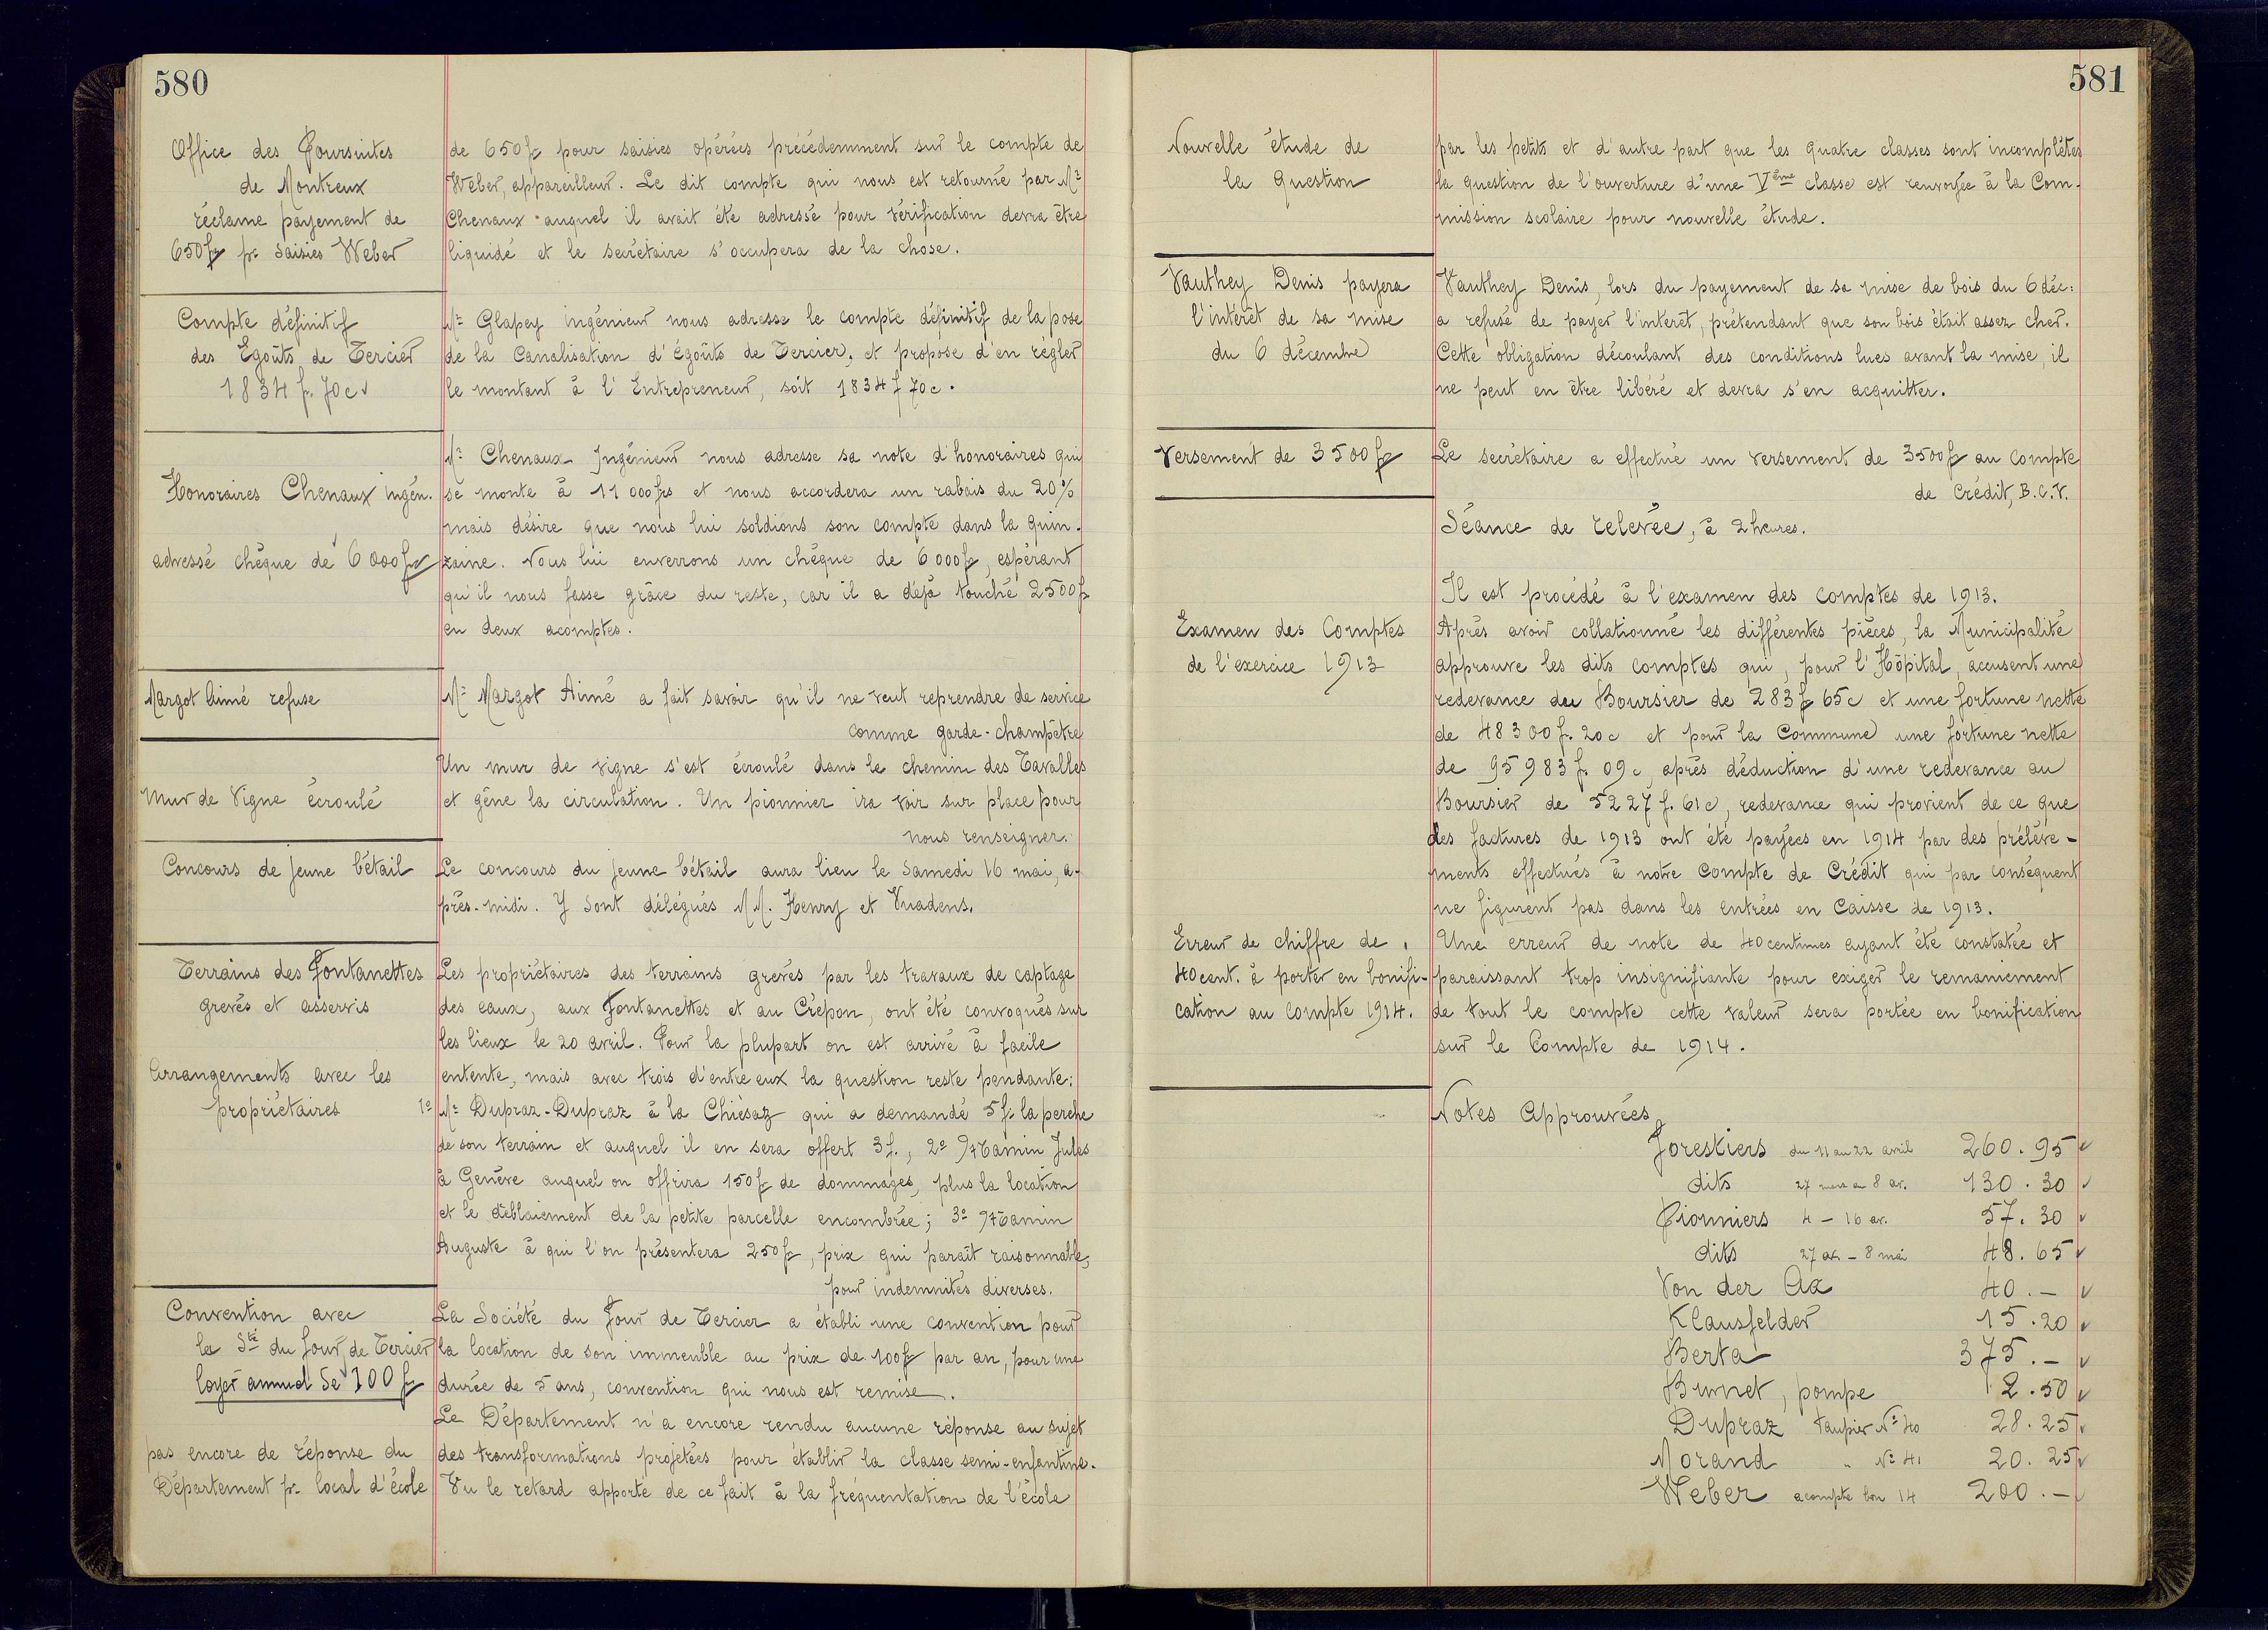 580
Office des Poursuites
de Montreux
réclame payement de
650 fr pr saisies Weber
de 650 fr pour saisies opérées précédemment sur le compte de
Weber, appareilleur. Le dit compte qui nous est retourné par Mr
Chenaux auquel il avait été adressé pour vérification devra être
liquidé et le secrétaire s'occupera de la chose.
Compte définitif
des Egoûts de Tercier
1834 fr. 70 c
Mr Glapey ingénieur nous adresse le compte définitif de la pose
de la Canalisation d'égoûts de Tercier, et propose d'en régler
le montant à l'Entrepreneur, soit 1834 f 70 c.
Honoraires Chenaux ingén.
adressé chèque de 6000 frs
Mr Chenaux Ingénieur nous adresse sa note d'honoraires qui
se monte à 11 000 frs et nous accordera un rabais du 20%
mais désire que nous lui soldions son compte dans la quin-
zaine. Nous lui enverrons un chèque de 6000 fr, espérant
qu'il nous fasse grâce du reste, car il a déjà touché 2500 f
en deux acomptes.
Margot Aimé refuse
Mr Margot Aimé a fait savoir qu'il ne veut reprendre de service
comme garde-champêtre
Mur de Vigne écroulé
Un mur de vigne s'est écroulé dans le chemin des Tavalles
et gêne la circulation. Un pionnier ira voir sur place pour
nous renseigner.
Concours de jeune bétail
Le concours du jeune bétail aura lieu le Samedi 16 mai, a-
près-midi. Y sont délégués M.M. Henry et Vuadens.
Terrains des Fontanettes
grevés et asservis
Arrangements avec les
propriétaires
Les propriétaires des terrains grevés par les travaux de captage
des eaux, aux Fontanettes et au Crépon, ont été convoqués sur
les lieux le 20 avril. Pour la plupart on est arrivé à facile
entente, mais avec trois d'entre eux la question reste pendante:
1o Mr Dupraz-Dupraz à la Chiésaz qui a demandé 5 f. la perche
de son terrain et auquel il en sera offert 3 f., 2o Mamin Jules
à Genève auquel on offrira 150 fr de dommages, plus la location
et le déblaiement de la petite parcelle encombrée; 3o Mamin
Auguste à qui l'on présentera 250 fr, prix qui paraît raisonnable,
pour indemnités diverses.
Convention avec
la Sté du four de Tercier
loyer annuel de 100 fr
La Société du Four de Tercier a établi une convention pour
la location de son immeuble au prix de 100 fr par an, pour une
durée de 5 ans, convention qui nous est remise.
pas encore de réponse du
Département pr local d'école
Le Département n'a encore rendu aucune réponse au sujet
des transformations projetées pour établir la classe semi-enfantine.
Vu le retard apporté de ce fait à la fréquentation de l'école
581
Nouvelle étude de
la question
par les petits et d'autre part que les quatre classes sont incomplètes
la question de l'ouverture d'une Vème classe est renvoyée à la Com-
mission scolaire pour nouvelle étude.
Vauthey Denis payera
l'intérêt de sa mise
du 6 décembre
Vauthey Denis, lors du payement de sa mise de bois du 6 déc:
a refusé de payer l'intérêt, prétendant que son bois était assez cher.
Cette obligation découlant des conditions lues avant la mise, il
ne peut en être libéré et devra s'en acquitter.
Versement de 3500 fr
Le secrétaire a effectué un versement de 3500 fr au compte
de Crédit, B.C.V.
Séance de relevée, à 2 heures.
Examen des Comptes
de l'exercice 1913
Il est procédé à l'examen des comptes de 1913.
Après avoir collationné les différentes pièces, la Municipalité
approuve les dits comptes qui, pour l'Hôpital, accusent une
redevance du Boursier de 283 fr 65 c et une fortune nette
de 48 300 f. 20 c et pour la Commune une fortune nette
de 95 983 f. 09 c, après déduction d'une redevance au
Boursier de 5227 f. 61 c, redevance qui provient de ce que
des factures de 1913 ont été payées en 1914 par des prélève-
ments effectués à notre Compte de Crédit qui par conséquent
ne figurent pas dans les entrées en Caisse de 1913.
Erreur de chiffre de
40 cent. à porter en bonifi-
cation au Compte 1914.
Une erreur de note de 40 centimes ayant été constatée et
paraissant trop insignifiante pour exiger le remaniement
de tout le compte cette valeur sera portée en bonification
sur le Compte de 1914.
Notes Approuvées
Forestiers du 11 au 22 avril 260.95 ✓
dits 27 mars au 8 av. 130.30 ✓
Pionniers 4 - 16 av. 57.30 ✓
dits 27 av. - 8 mai 48.65 ✓
Von der Aa 40.- ✓
Klausfelder 15.20 ✓
Berta 375.- ✓
Brunet, pompe 2.50 ✓
Dupraz taupier No 40 28.25 ✓
Morand " No 41 20.25 ✓
Weber acompte bon 14 200.- ✓